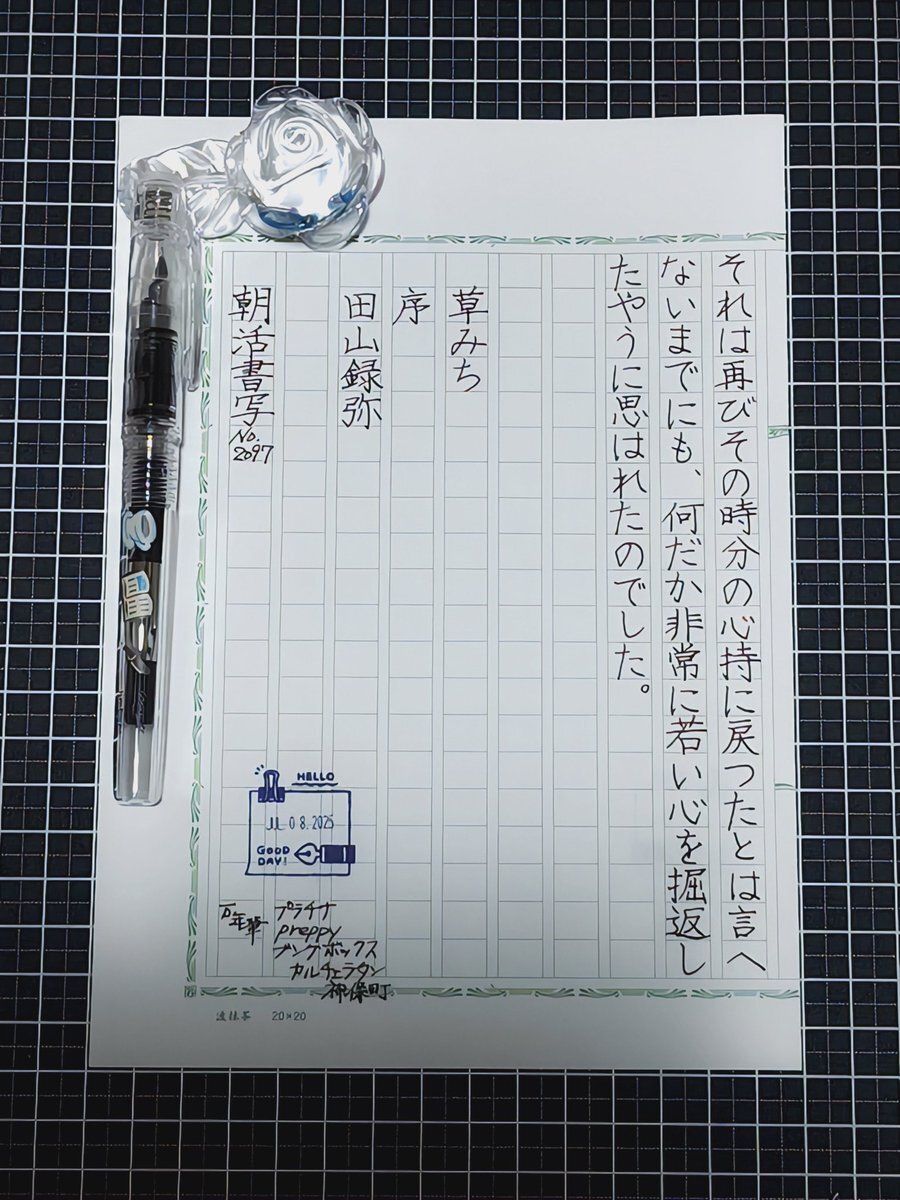 それは再びその時分の心持に戻つたとは言へ
ないまでにも、何だか非常に若い心を掘返し
たやうに思はれたのでした。
草みち
序
田山録弥
朝活書写
No.
2097
HELLO
JUL 08.2025
GOOD
DAY!
万年筆
プラチナ
preppy
ブングボックス
カルチェラタン
神保町
20×20